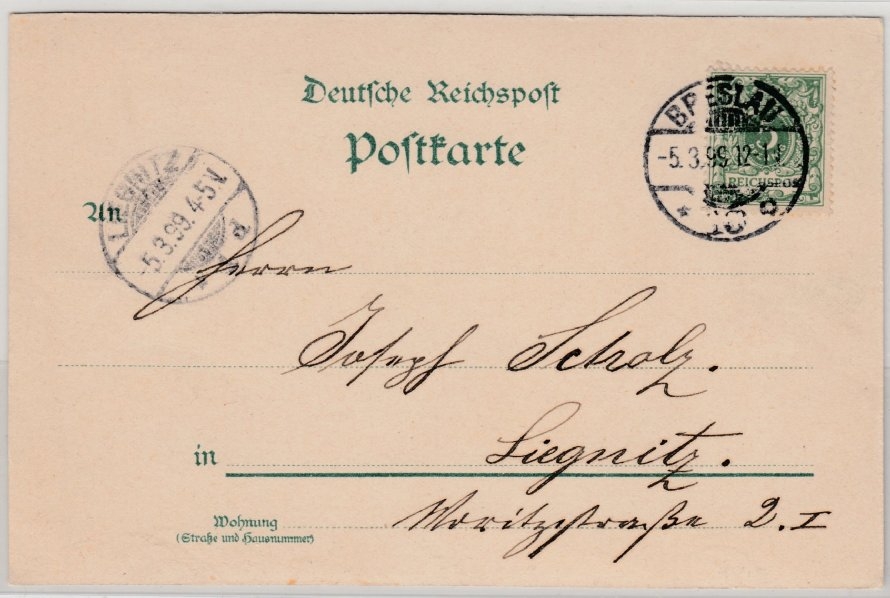 Deutsche Reichspost
Postkarte
BRESLAU
-5.3.99.12-1
REICHSPOST
LIEGNITZ
-5.3.99.4-5N.
d
An
Herrn
Joseph Scholz.
in Liegnitz.
Wohnung Moritzstraße 2. I
(Straße und Hausnummer)